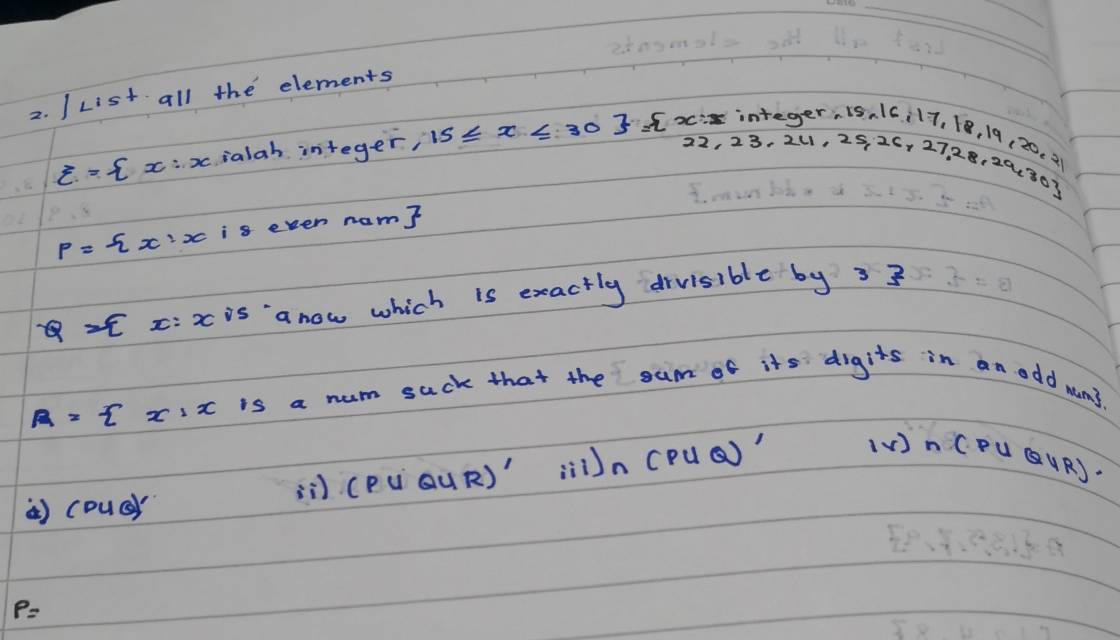 2. List all the elements
ξ = { x : x ialah integer, 15 ≤ x ≤ 30 } = { x : x integer, 15, 16, 17, 18, 19, 20, 21
22, 23, 24, 25, 26, 27, 28, 29, 30 }
P = { x : x is even num }
Q = { x : x is a which is exactly divisible by 3 }
R = { x : x is a num suck that the sum of its digits in an odd num }.
i) (PUQ)'
ii) (PUQUR)' iii) n (PUQ)' iv) n (PUQUR)'
P=